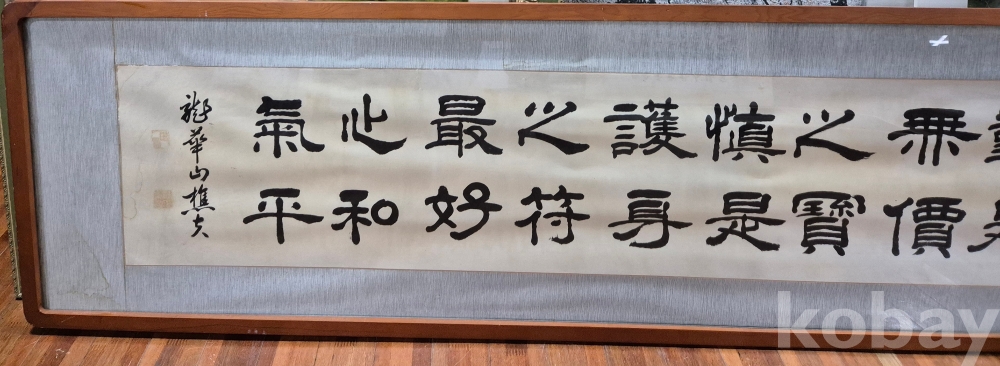 無價
之寶
慎是
護身
之符
最好
心和
氣平
華山樵夫
kobay